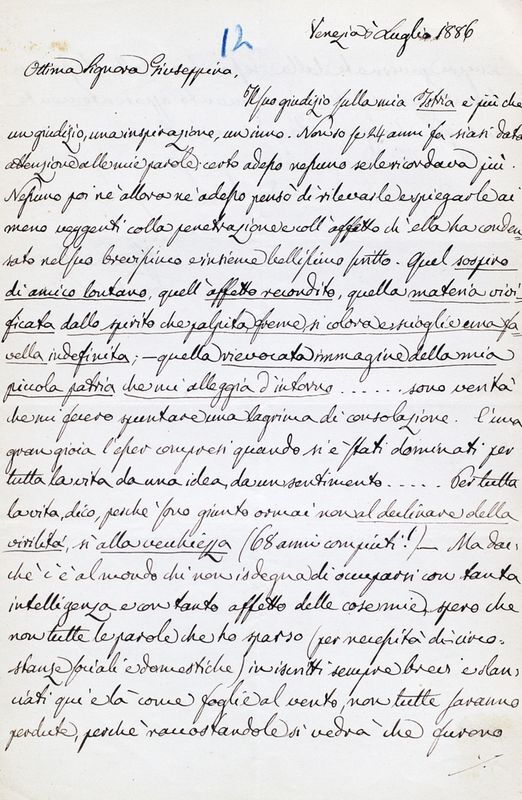 12
Venezia 5 Luglio 1886
Ottima Signora Giuseppina.
Il suo giudizio sulla mia Istria è più che
un giudizio, una inspirazione, un inno. Non so se 24 anni fa siasi data
attenzione alle mie parole: certo adesso nessuno se le ricordava più.
Nessuno poi nè allora nè adesso pensò di rilevarle e spiegarle ai
meno veggenti colla penetrazione e coll'affetto ch'ella ha conden-
sato nel suo brevissimo e insieme bellissimo scritto. Quel sospiro
di amico lontano, quell'affetto recondito, quella materia vivi-
ficata dallo spirito che palpita, freme, si colora e scioglie una fa-
vella indefinita; — quella rievocata immagine della mia
piccola patria che mi alleggia d'intorno ...... sono verità
che mi fecero spuntare una lagrima di consolazione. È una
gran gioia l'esser compresi quando si è stati dominati per
tutta la vita da una idea, da un sentimento ..... Per tutta
la vita, dico, perchè sono giunto ormai non al declinare della
virilità, sì alla vecchiezza (68 anni compiuti!) — Ma dac-
chè c'è al mondo chi non isdegna di occuparsi con tanta
intelligenza e con tanto affetto delle cose mie, spero che
non tutte le parole che ho sparso (per necessità di circo-
stanze sociali e domestiche) in iscritti sempre brevi e slan-
ciati qui e là come foglie al vento, non tutte saranno
perdute, perchè raccostandole si vedrà che furono